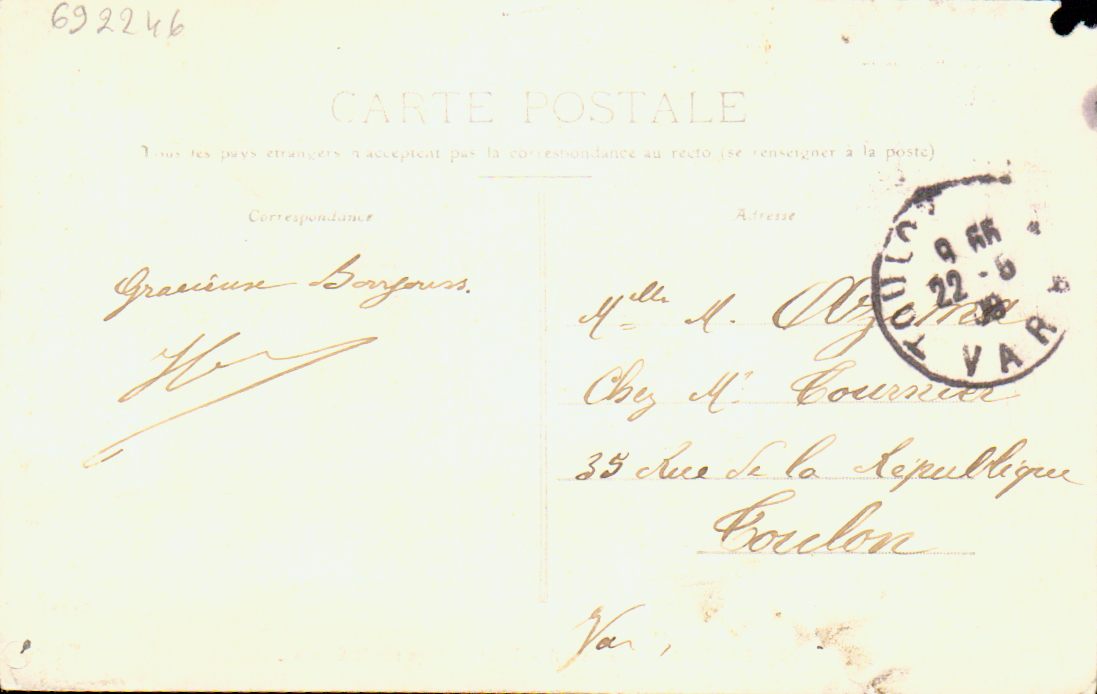 692246
CARTE POSTALE
Tous les pays étrangers n'acceptent pas la correspondance au recto (se renseigner à la poste)
Correspondance
Adresse
Gracieuse
TOULON
VAR
22 - 6
Melle M.
Chez Mr Tournier
35 Rue de la République
Toulon
Var,